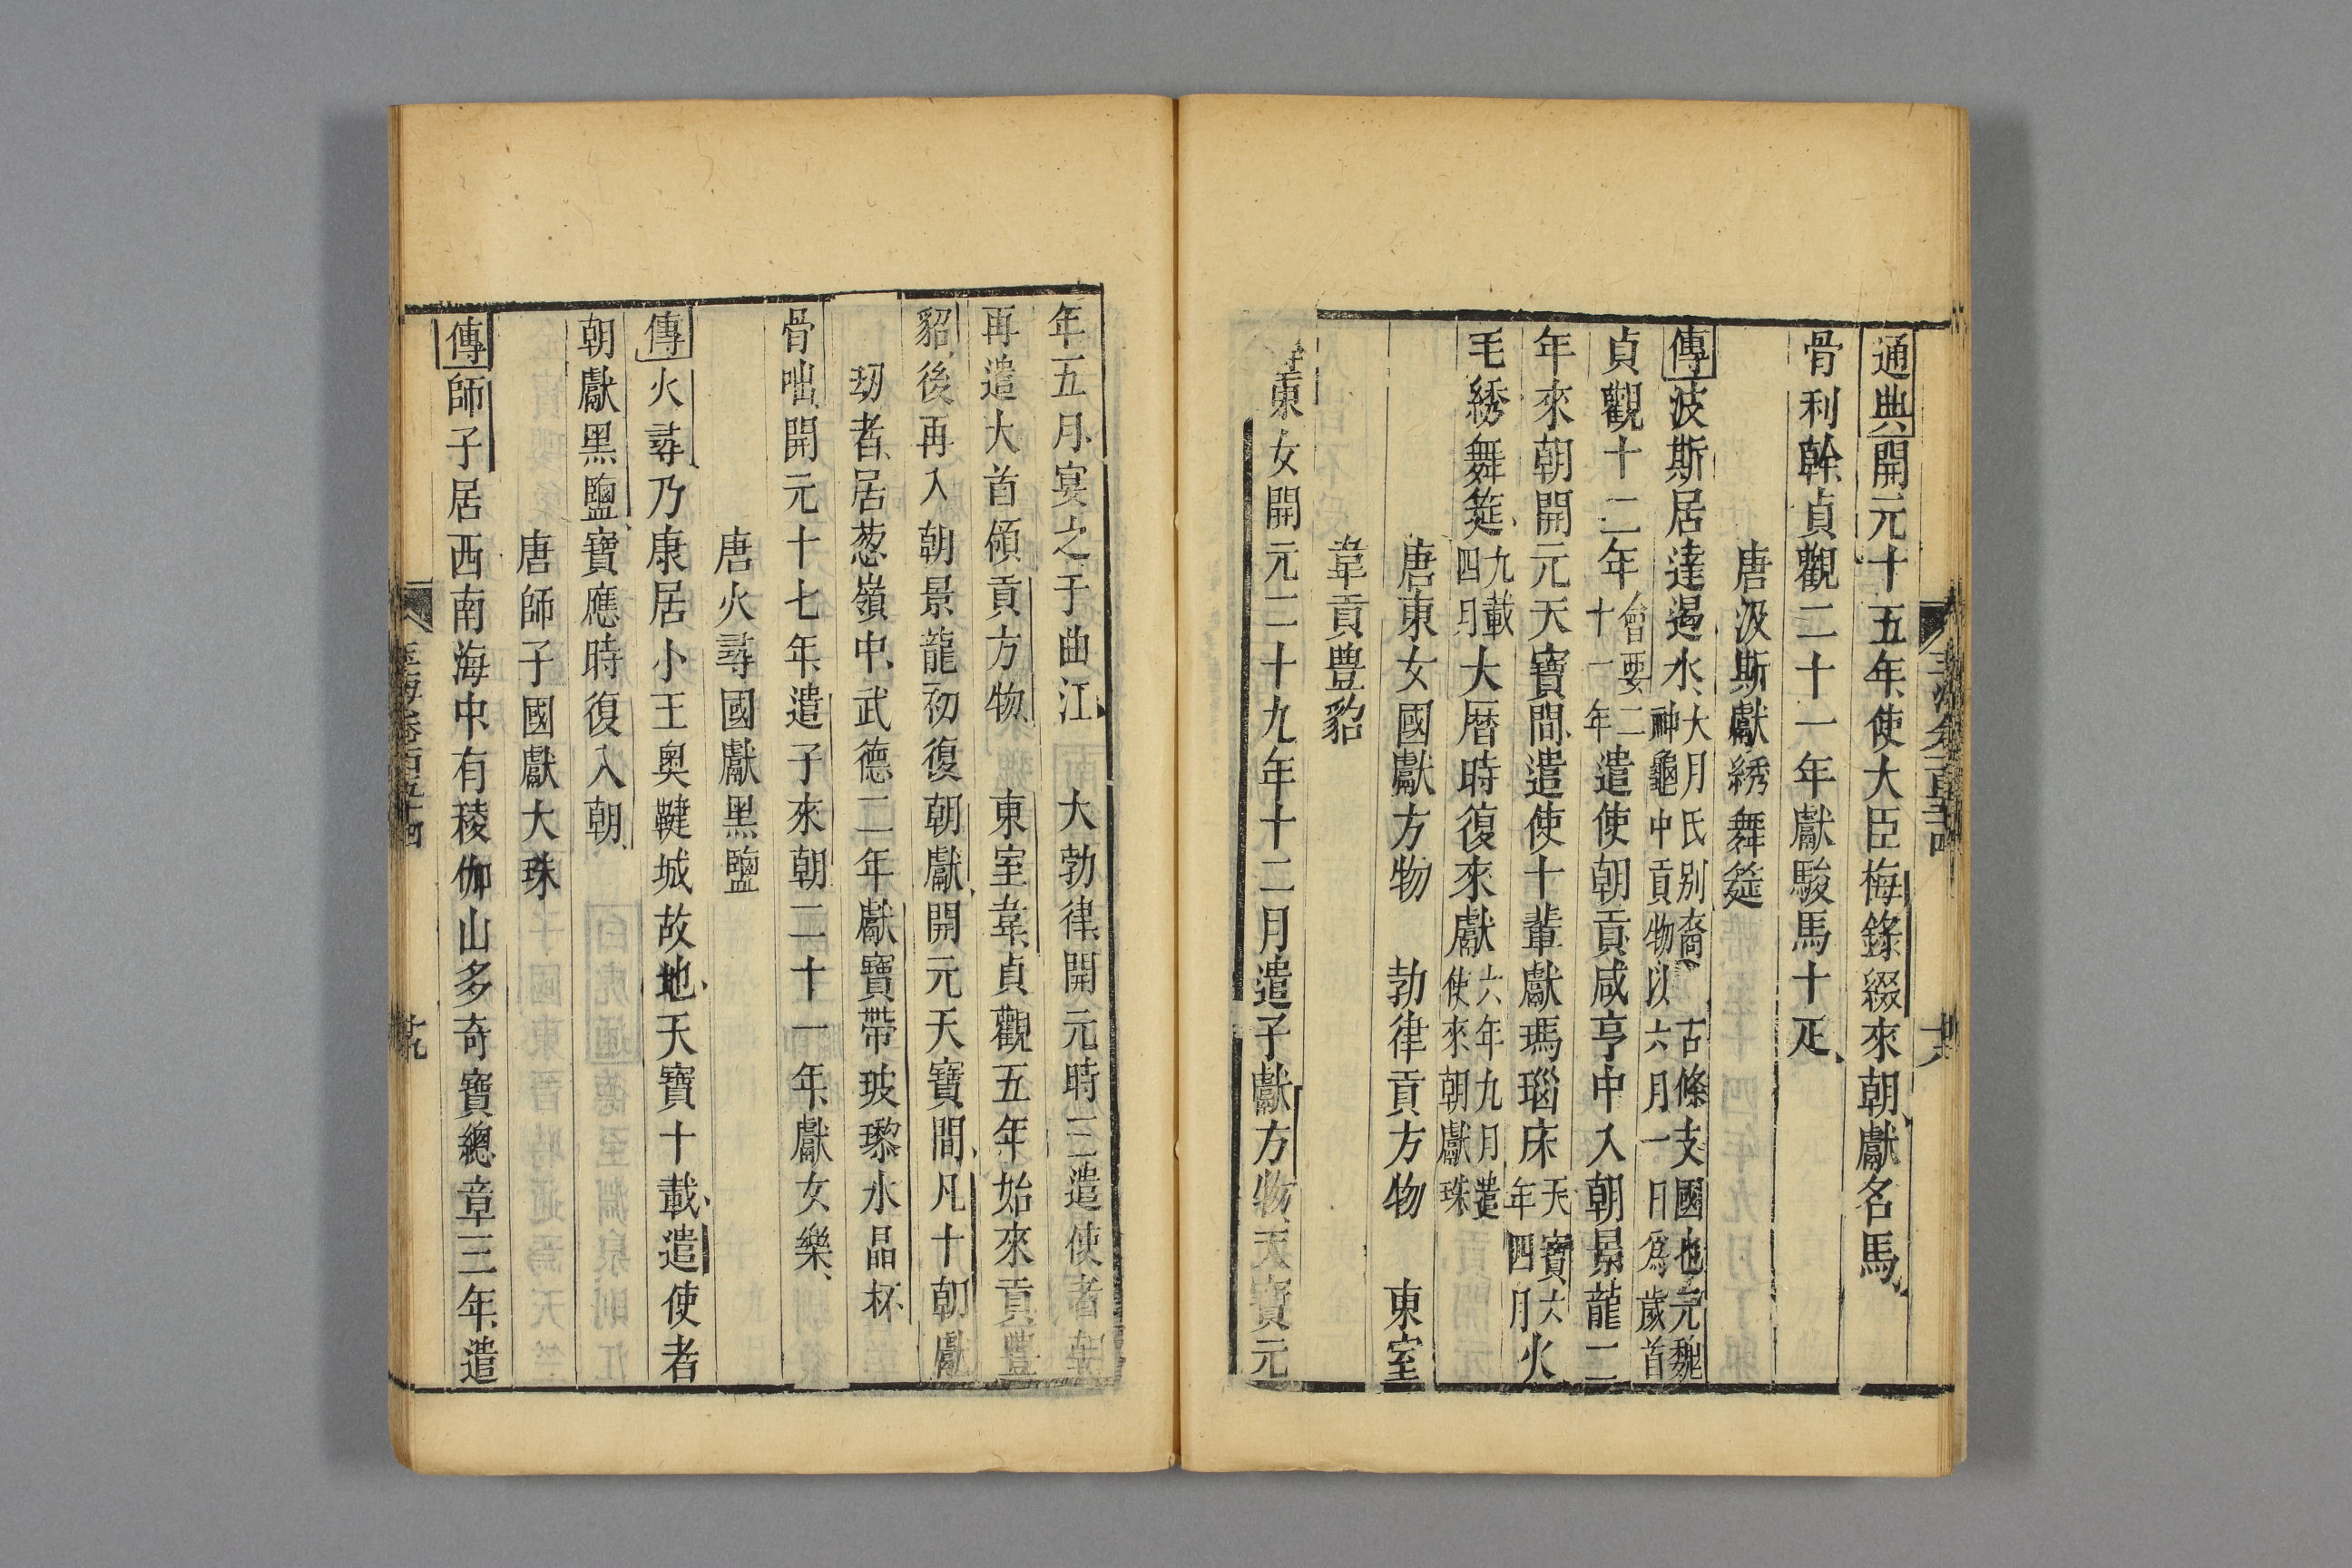 通典開元十五年使大臣梅錄綴來朝獻名馬
骨利幹貞觀二十一年獻駿馬十疋
唐波斯獻綉舞筵
傳波斯居達遏水大月氏別裔古條支國也元魏神龜中貢物以六月一日爲歲首
貞觀十二年會要二十一年遣使朝貢咸亨中入朝景龍二
年來朝開元天寶間遣使十輩獻瑪瑙床天寶六年四月火
毛綉舞筵九載四月大曆時復來獻六年九月遣使來朝獻珠
唐東女國獻方物 勃律貢方物 東室
韋貢豐貂
東女開元二十九年十二月遣子獻方物天寶元
年五月宴之于曲江 大勃律開元時三遣使者
再遣大首領貢方物 東室韋貞觀五年始來貢豐
貂後再入朝景龍初復朝獻開元天寶間凡十朝獻
㓚者居葱嶺中武德二年獻寶帶玻瓈水晶杯
骨咄開元十七年遣子來朝二十一年獻女樂
唐火尋國獻黑鹽
傳火尋乃康居小王奧鞬城故地天寶十載遣使者
朝獻黑鹽寶應時復入朝
唐師子國獻大珠
傳師子居西南海中有稜伽山多奇寶總章三年遣